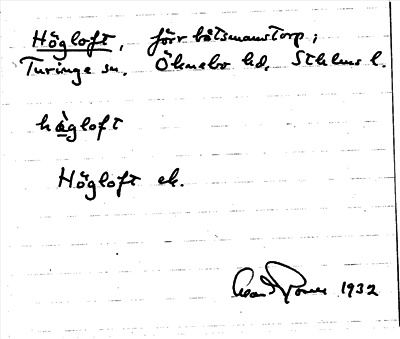 Högloft, förr båtsmanstorp;
Turinge sn. Öknebo hd, Sthlms l.
hògloft
Högloft ek.
1932